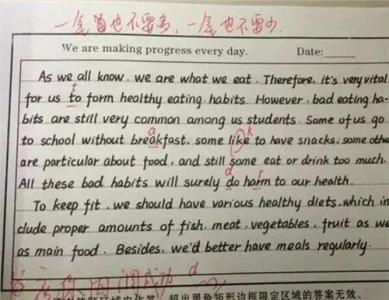 一笔画也不要多，一笔也不要少.
We are making progress every day. Date:
As we all know, we are what we eat. Therefore, it's very vital
t
for us to form healthy eating habits. However, bad eating ha-
bits are still very common among us students. Some of us go
a k
to school without breakfast, some like to have snacks, some othe
are particular about food, and still some eat or drink too much.
d r
All these bad habits will surely do harm to our health.
To keep fit, we should have various healthy diets, which in
clude proper amounts of fish, meat, vegetables, fruit as we
as main food. Besides, we'd better have meals regularly.
d
超出黑色矩形边框限定区域的答案无效。